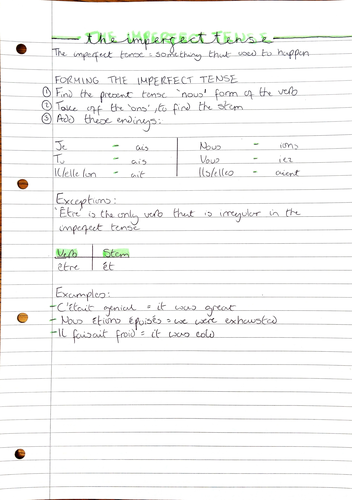 THE IMPERFECT TENSE
the imperfect tense
The imperfect tense : something that used to happen
FORMING THE IMPERFECT TENSE
① Find the present tense 'nous' form of the verb
② Take off the 'ons', to find the stem
③ Add these endings:
Je - ais Nous - ions
Tu - ais Vous - iez
Il/elle/on - ait Ils/elles - aient
Exceptions:
Être is the only verb that is irregular in the
imperfect tense
Verb Stem
être Ét
Examples:
- C'était genial = it was great
- Nous étions épuisés = we were exhausted
- Il faisait froid = it was cold